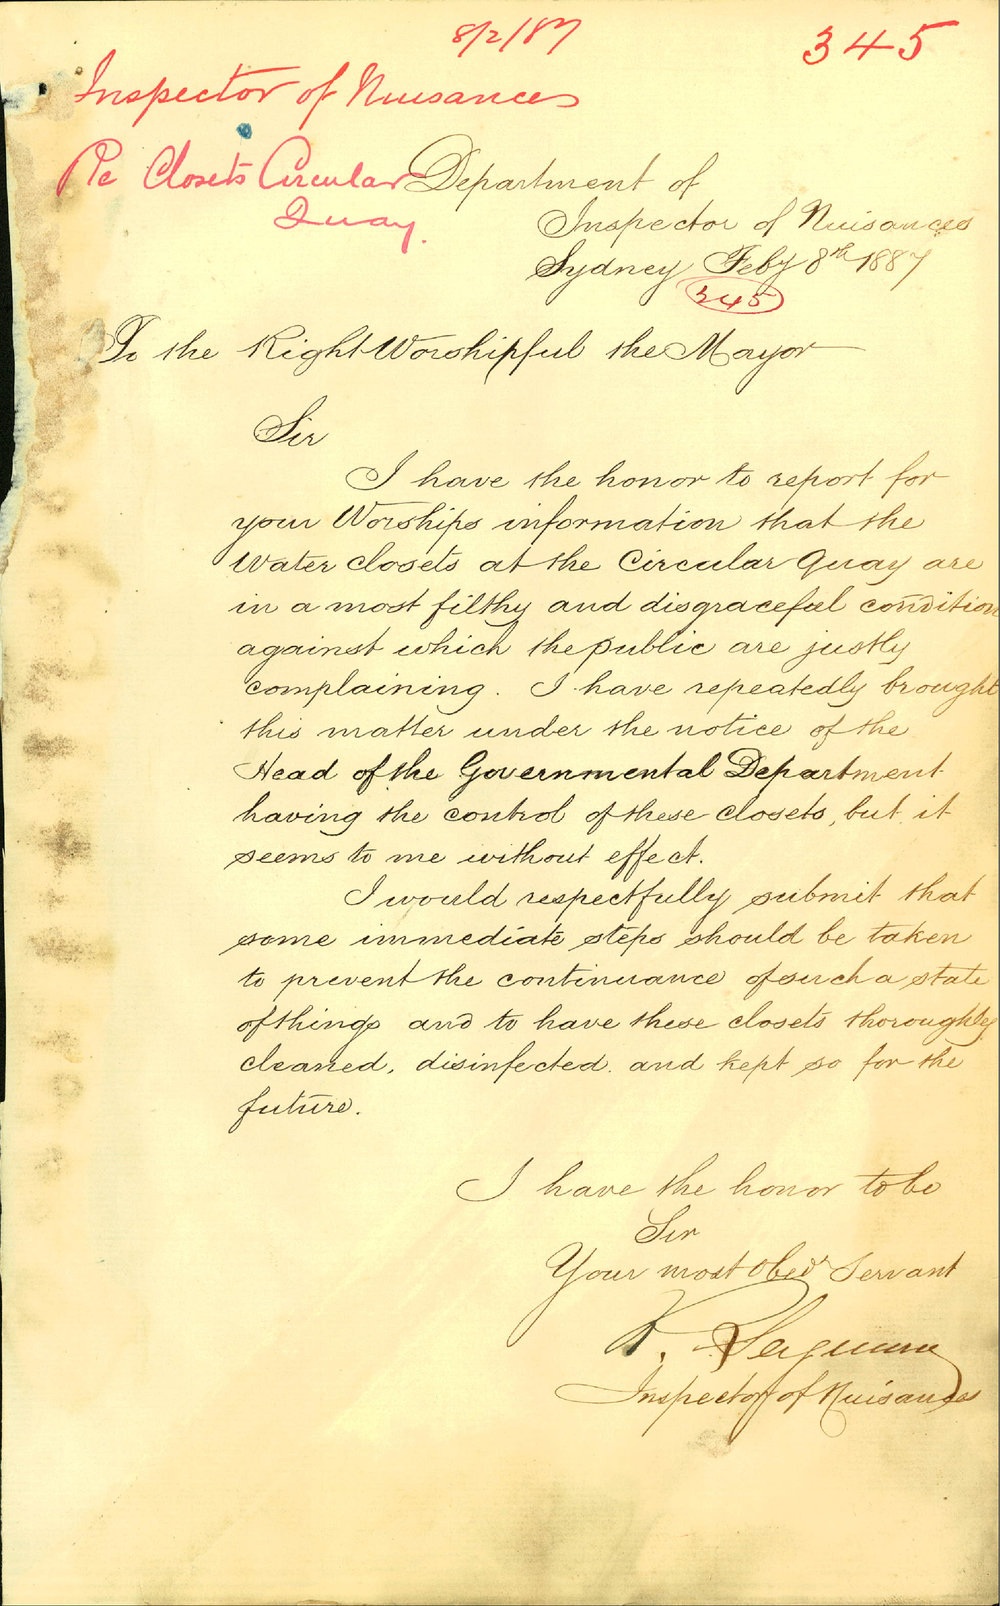 8/2/87
345
Inspector of Nuisances
Re Closets Circular
Quay.
Department of
Inspector of Nuisances
Sydney Feby 8th 1887
345
To the Right Worshipful the Mayor
Sir
I have the honor to report for
your Worships information that the
Water closets at the Circular Quay are
in a most filthy and disgraceful condition
against which the public are justly
complaining. I have repeatedly brought
this matter under the notice of the
Head of the Governmental Department
having the control of these closets, but it
seems to me without effect.
I would respectfully submit that
some immediate steps should be taken
to prevent the continuance of such a state
of things and to have these closets thoroughly
cleaned, disinfected and kept so for the
future.
I have the honor to be
Sir
Your most Obedt Servant
Seymour
Inspector of Nuisances